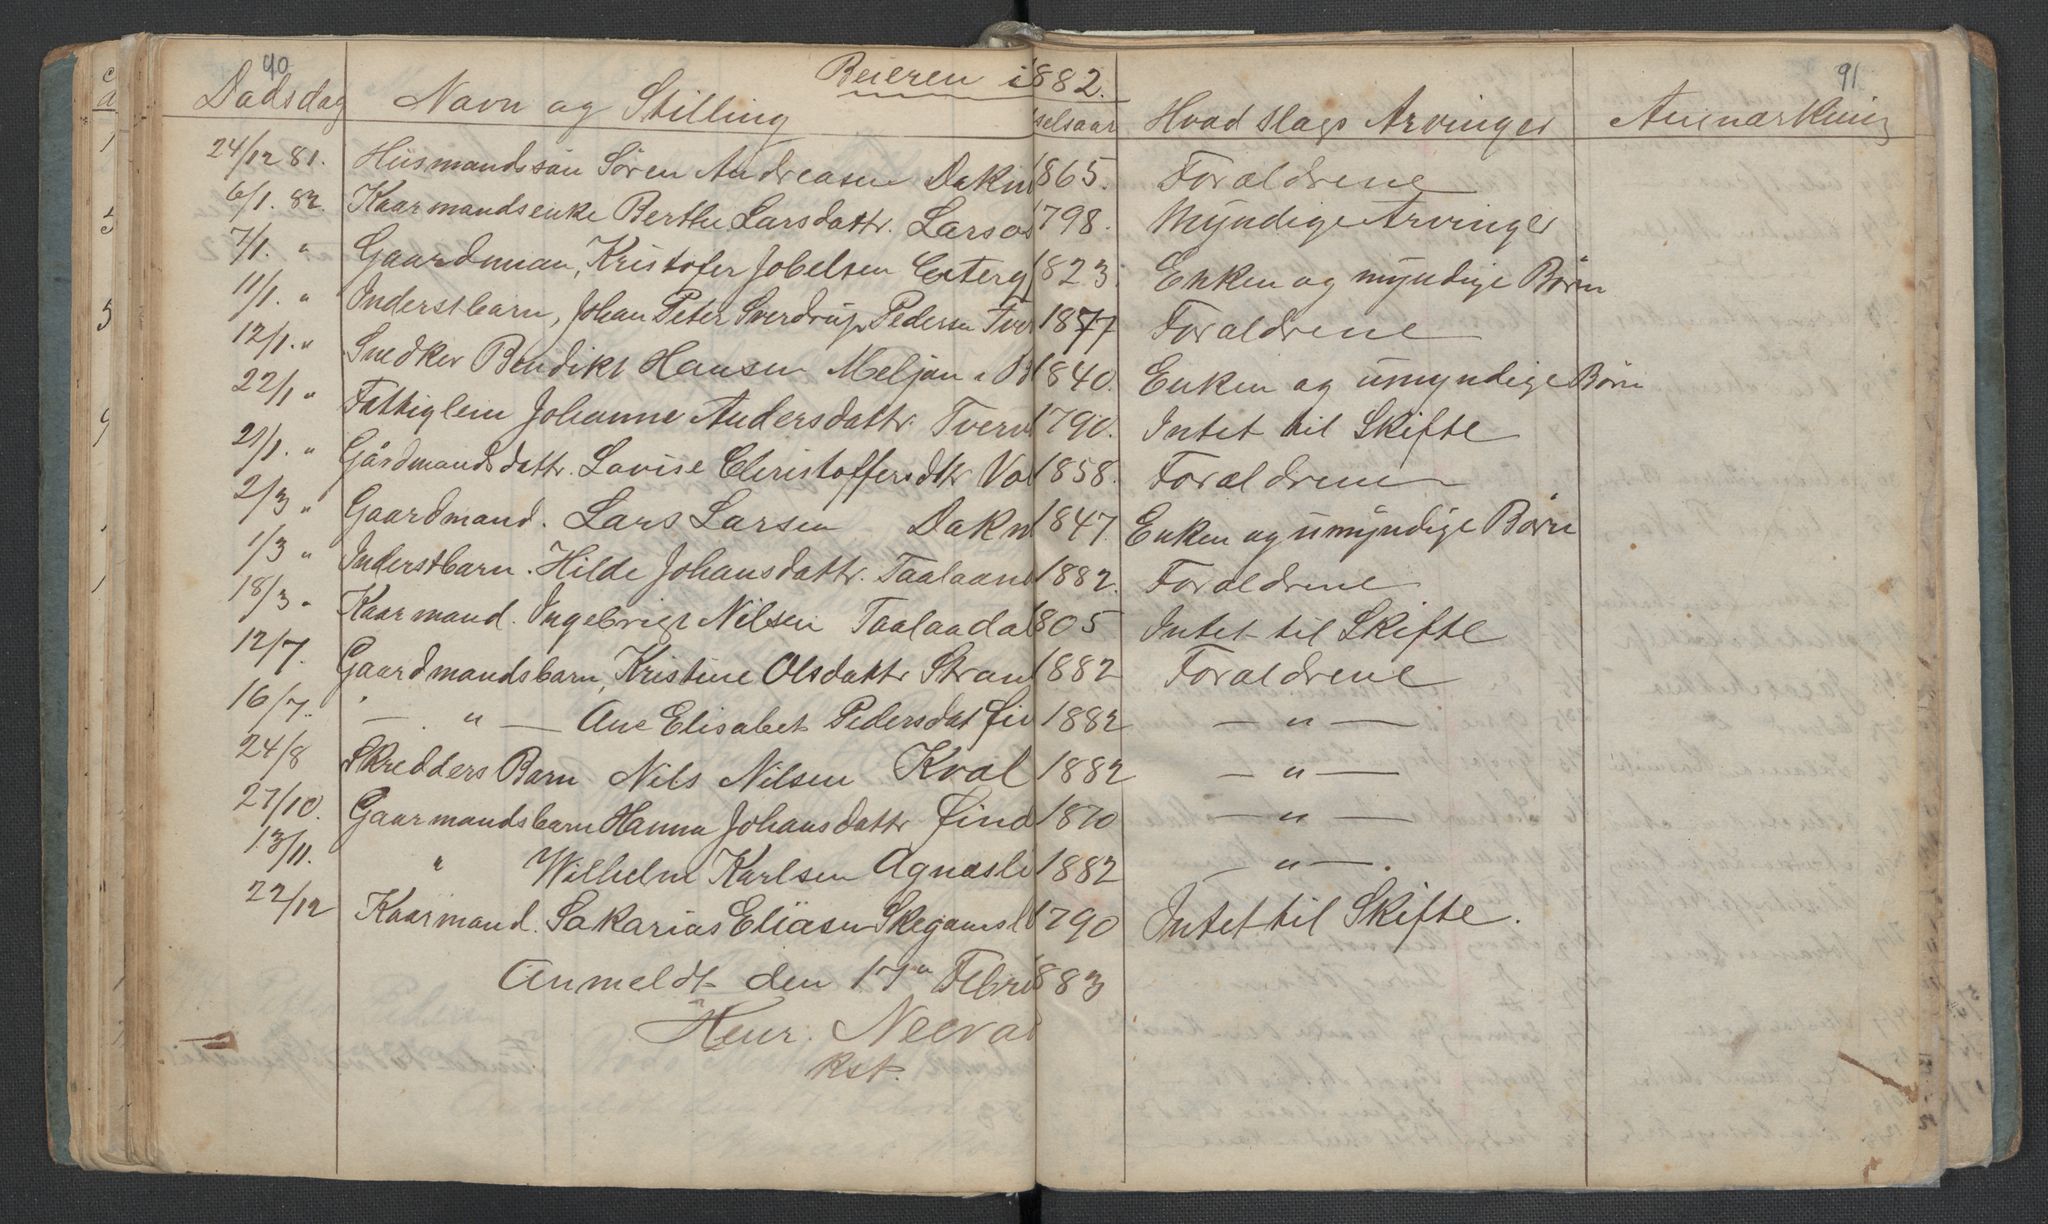 90
91
Beieren i 1882.
Dødsdag Navn og Stilling selsaar Hvad slags Arvinger Anmærkning
24/12 81. Husmandssøn Søren Andreasen Dokm 1865. Forældrene
6/1. 82. Kaarmandsenke Berthe Larsdattr. Larsos 1798. Myndige Arvinger
7/1. " Gaardman, Kristofer Jobelsen 1823. Enken og myndige Børn
11/1. " Inderstbarn, Johan Peter Sverdrup Pedersen Tver 1877 Forældrene
12/1. " Snedker Bendikt Hansen Meljan 1840. Enken og umyndige Børn
22/1 " Fattiglem Johanne Andersdattr. Tverv 1790. Intet til Skifte
21/1. " Gårdmandsdattr. Lovise Christoffersdtr Vol 1858. Forældrene
2/3 " Gaardmand. Lars Larsen Dokm 1847. Enken og umyndige Børn
1/3 " Inderstbarn. Hilde Johansdattr. Taalaan 1882. Forældrene
18/3 " Kaarmand. Ingebrigt Nilsen Taalaadal 1805 Intet til Skifte
12/7. Gaardmandsbarn, Kristine Olsdattr Stran 1882 Forældrene
16/7. — " — Ane Elisabet Pedersdat 1882 — " —
24/8 Skredders Barn Nils Nilsen Kvæl 1882 — " —
27/10. Gaarmandsbarn Hanna Johansdattr 1870 — " —
13/11. " Wilhelm Karlsen Agnæsli 1882 — " —.
22/12 Kaarmand. Sakarias Eliasen 1790 Intet til Skifte.
Anmeldt den 17de Febr 1883
Henr. Neeva
kst.